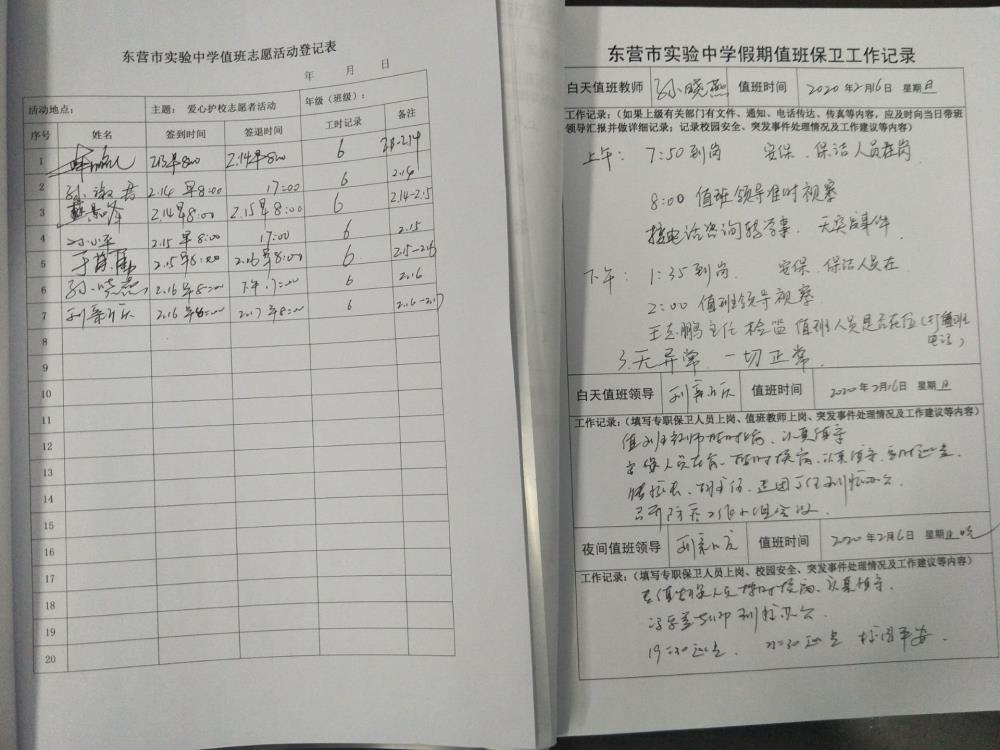 东营市实验中学值班志愿活动登记表
年 月 日
活动地点： 主题： 爱心护校志愿者活动 年级（班级）：
序号 姓名 签到时间 签退时间 工时记录 备注
1 2.13早8:00 2.14早8:00 6 2.13-2.14
2 孙淑君 2.14早8:00 17:00 6 2.14
3 2.14早8:00 2.15早8:00 6 2.14-2.15
4 2.15早8:00 17:00 6 2.15
5 2.15早8:00 2.16早8:00 6 2.15-2.16
6 孙晓燕 2.16早8:00 下午17:00 6 2.16
7 2.16早8:00 2.17早8:00 6 2.16-2.17
8
9
10
11
12
13
14
15
16
17
18
19
20
东营市实验中学假期值班保卫工作记录
白天值班教师 孙晓燕 值班时间 2020年2月16日 星期日
工作记录：（如果上级有关部门有文件、通知、电话传达、传真等内容，应及时向当日带班
领导汇报并做详细记录；记录校园安全、突发事件处理情况及工作建议等内容）
上午： 7:50到岗 安保、保洁人员在岗
8:00 值班领导准时视察
接电话咨询转学事 无突发事件
下午： 1:35到岗 安保、保洁人员在
2:00 值班领导视察
王志鹏主任检监值班人员是否在位（打值班
电话）
3.无异常 一切正常.
白天值班领导 值班时间 2020年2月16日 星期日
工作记录：（填写专职保卫人员上岗、值班教师上岗、突发事件处理情况及工作建议等内容）
值班教师按时到岗、认真值守
安保人员在岗、按时换岗、认真值守、
到校办公.
召开防疫工作小组会议.
夜间值班领导 值班时间 2020年2月16日 星期日晚
工作记录：（填写专职保卫人员上岗、校园安全、突发事件处理情况及工作建议等内容）
按时换岗、认真值守.
到校办公
19:30巡查. 22:30巡查 校园平安